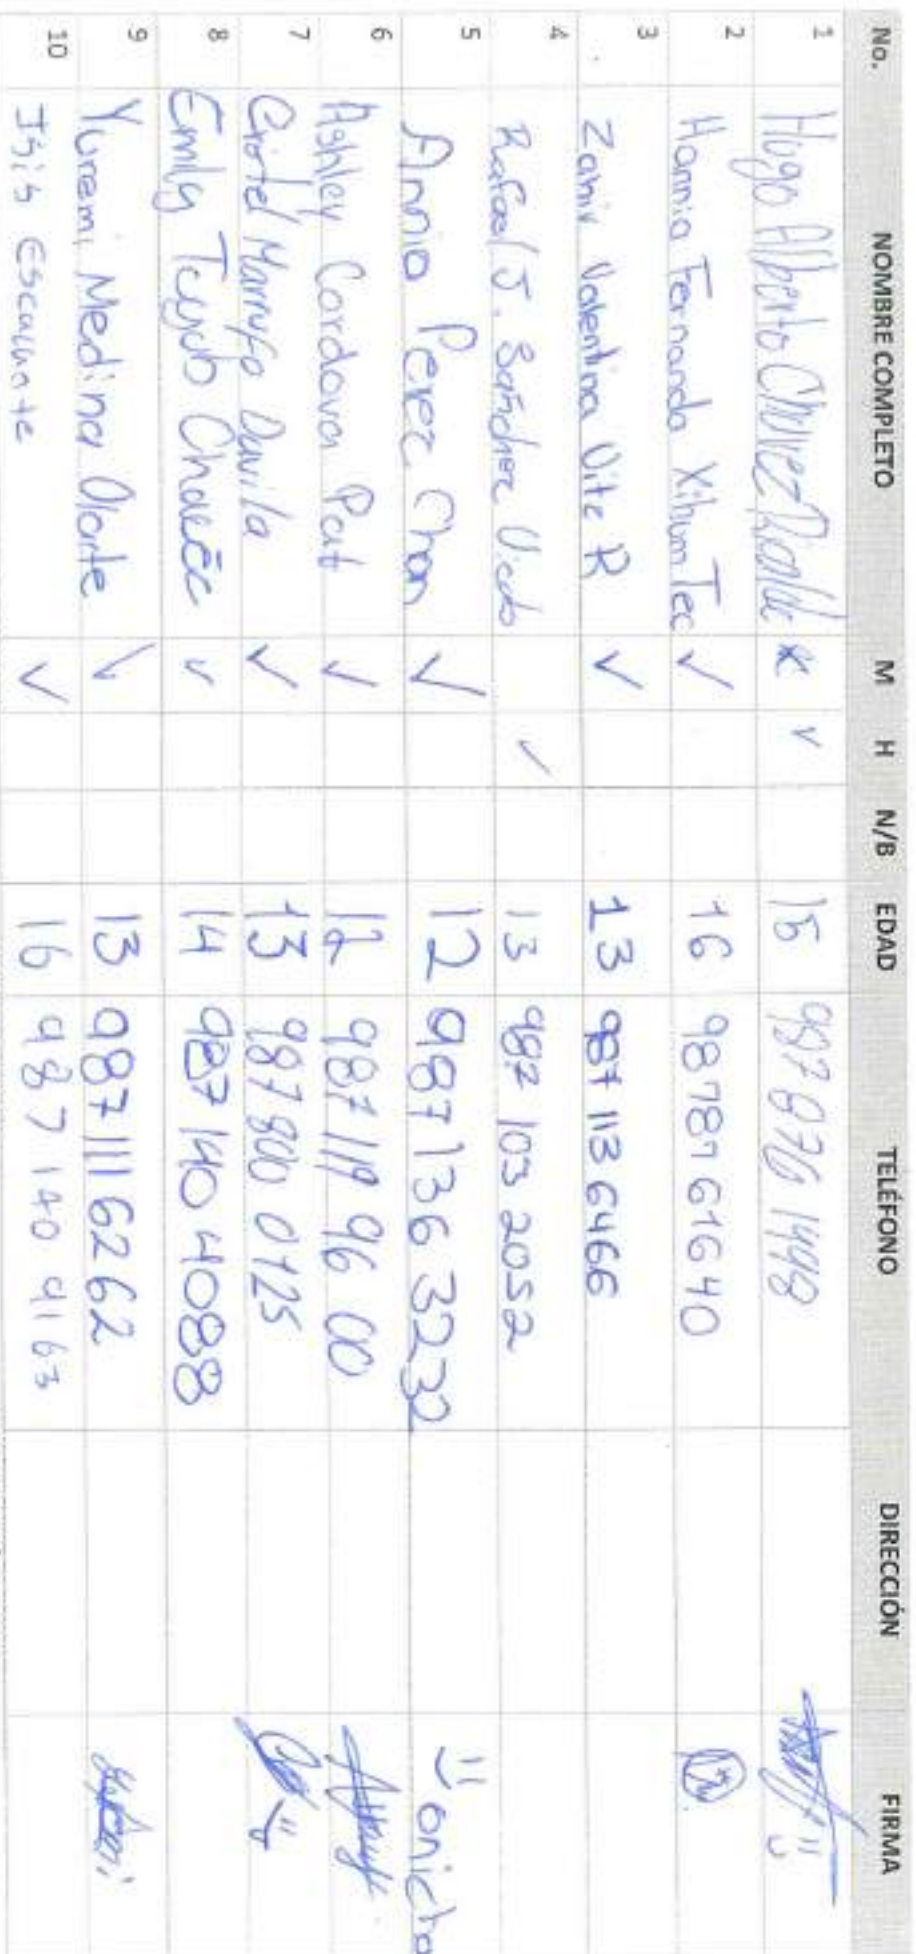 No. NOMBRE COMPLETO M H N/B EDAD TELÉFONO DIRECCIÓN FIRMA
1 Hugo Alberto Chavez ✓ 15 987 876 1448
2 Hannia Fernanda Xihum Tec ✓ 16 9878761640
3 Zahiv Valentina Vite R ✓ 13 987 113 6466
4 Rafael J. Sanchez ✓ 13 987 103 2052
5 Annia Perez Chan ✓ 12 987 136 3232
6 Ashley Cordova Pat ✓ 12 987 119 96 00
7 Marrufo Davila ✓ 13 987 800 0725
8 Emily ✓ 14 987 140 4088
9 Yuremi Medina Olarte ✓ 13 987 111 6262
10 Isis Escalante ✓ 16 987 140 9163